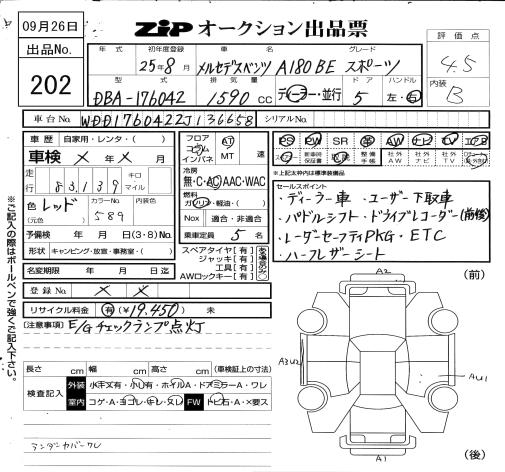 09月26日
出品No.
202
ZIP オークション出品票
評価点
4.5
内装
B
年式 初年度登録 車名 グレード
25年8月 メルセデスベンツ A180BE スポーツ
型式 排気量 ドア ハンドル
DBA-176042 1590cc ディーラー・並行 5 左・右
車台No. WDD1760422J136658 シリアルNo.
車歴 自家用・レンタ・( )
車検 × 年 × 月
走行 83,139 キロ マイル
色 レッド カラーNo. 589
(元色)
予備検 年 月 日(3・8)No.
形状 キャンピング・放管・事務室・( )
名変期限 年 月 日迄
フロア コラム インパネ AT MT 速
冷房
無・C・AC・AAC・WAC
燃料
ガソリン・軽油・( )
Nox 適合・非適合
乗車定員 5 名
スペアタイヤ【有】
ジャッキ【有】
工具【有】
AWロックキー【有】
PS PW SR 革 AW ナビ TV エアB
社外AW 社外ナビ 社外TV
*上記太枠内は標準装備品
セールスポイント
・ディーラー車 ・ユーザー下取車
・パドルシフト・ドライブレコーダー(前後)
・レーダーセーフティPKG・ETC
・ハーフレザーシート
登録No. × ×
リサイクル料金 有(¥19,450) 未
[注意事項] E/Gチェックランプ点灯
長さ cm 幅 cm 高さ cm (車検証上の寸法)
検査記入
外装 小キズ有・小凹有・ホイルA・ドアミラーA・ワレ
室内 コゲ・A・ヨゴレ・キレ・ヌレ FW トビ石・A・×要ス
アンダーカバーワレ
※ご記入の際はボールペンで強くご記入下さい。
(前)
A2
A3U2
AU1
A1
(後)